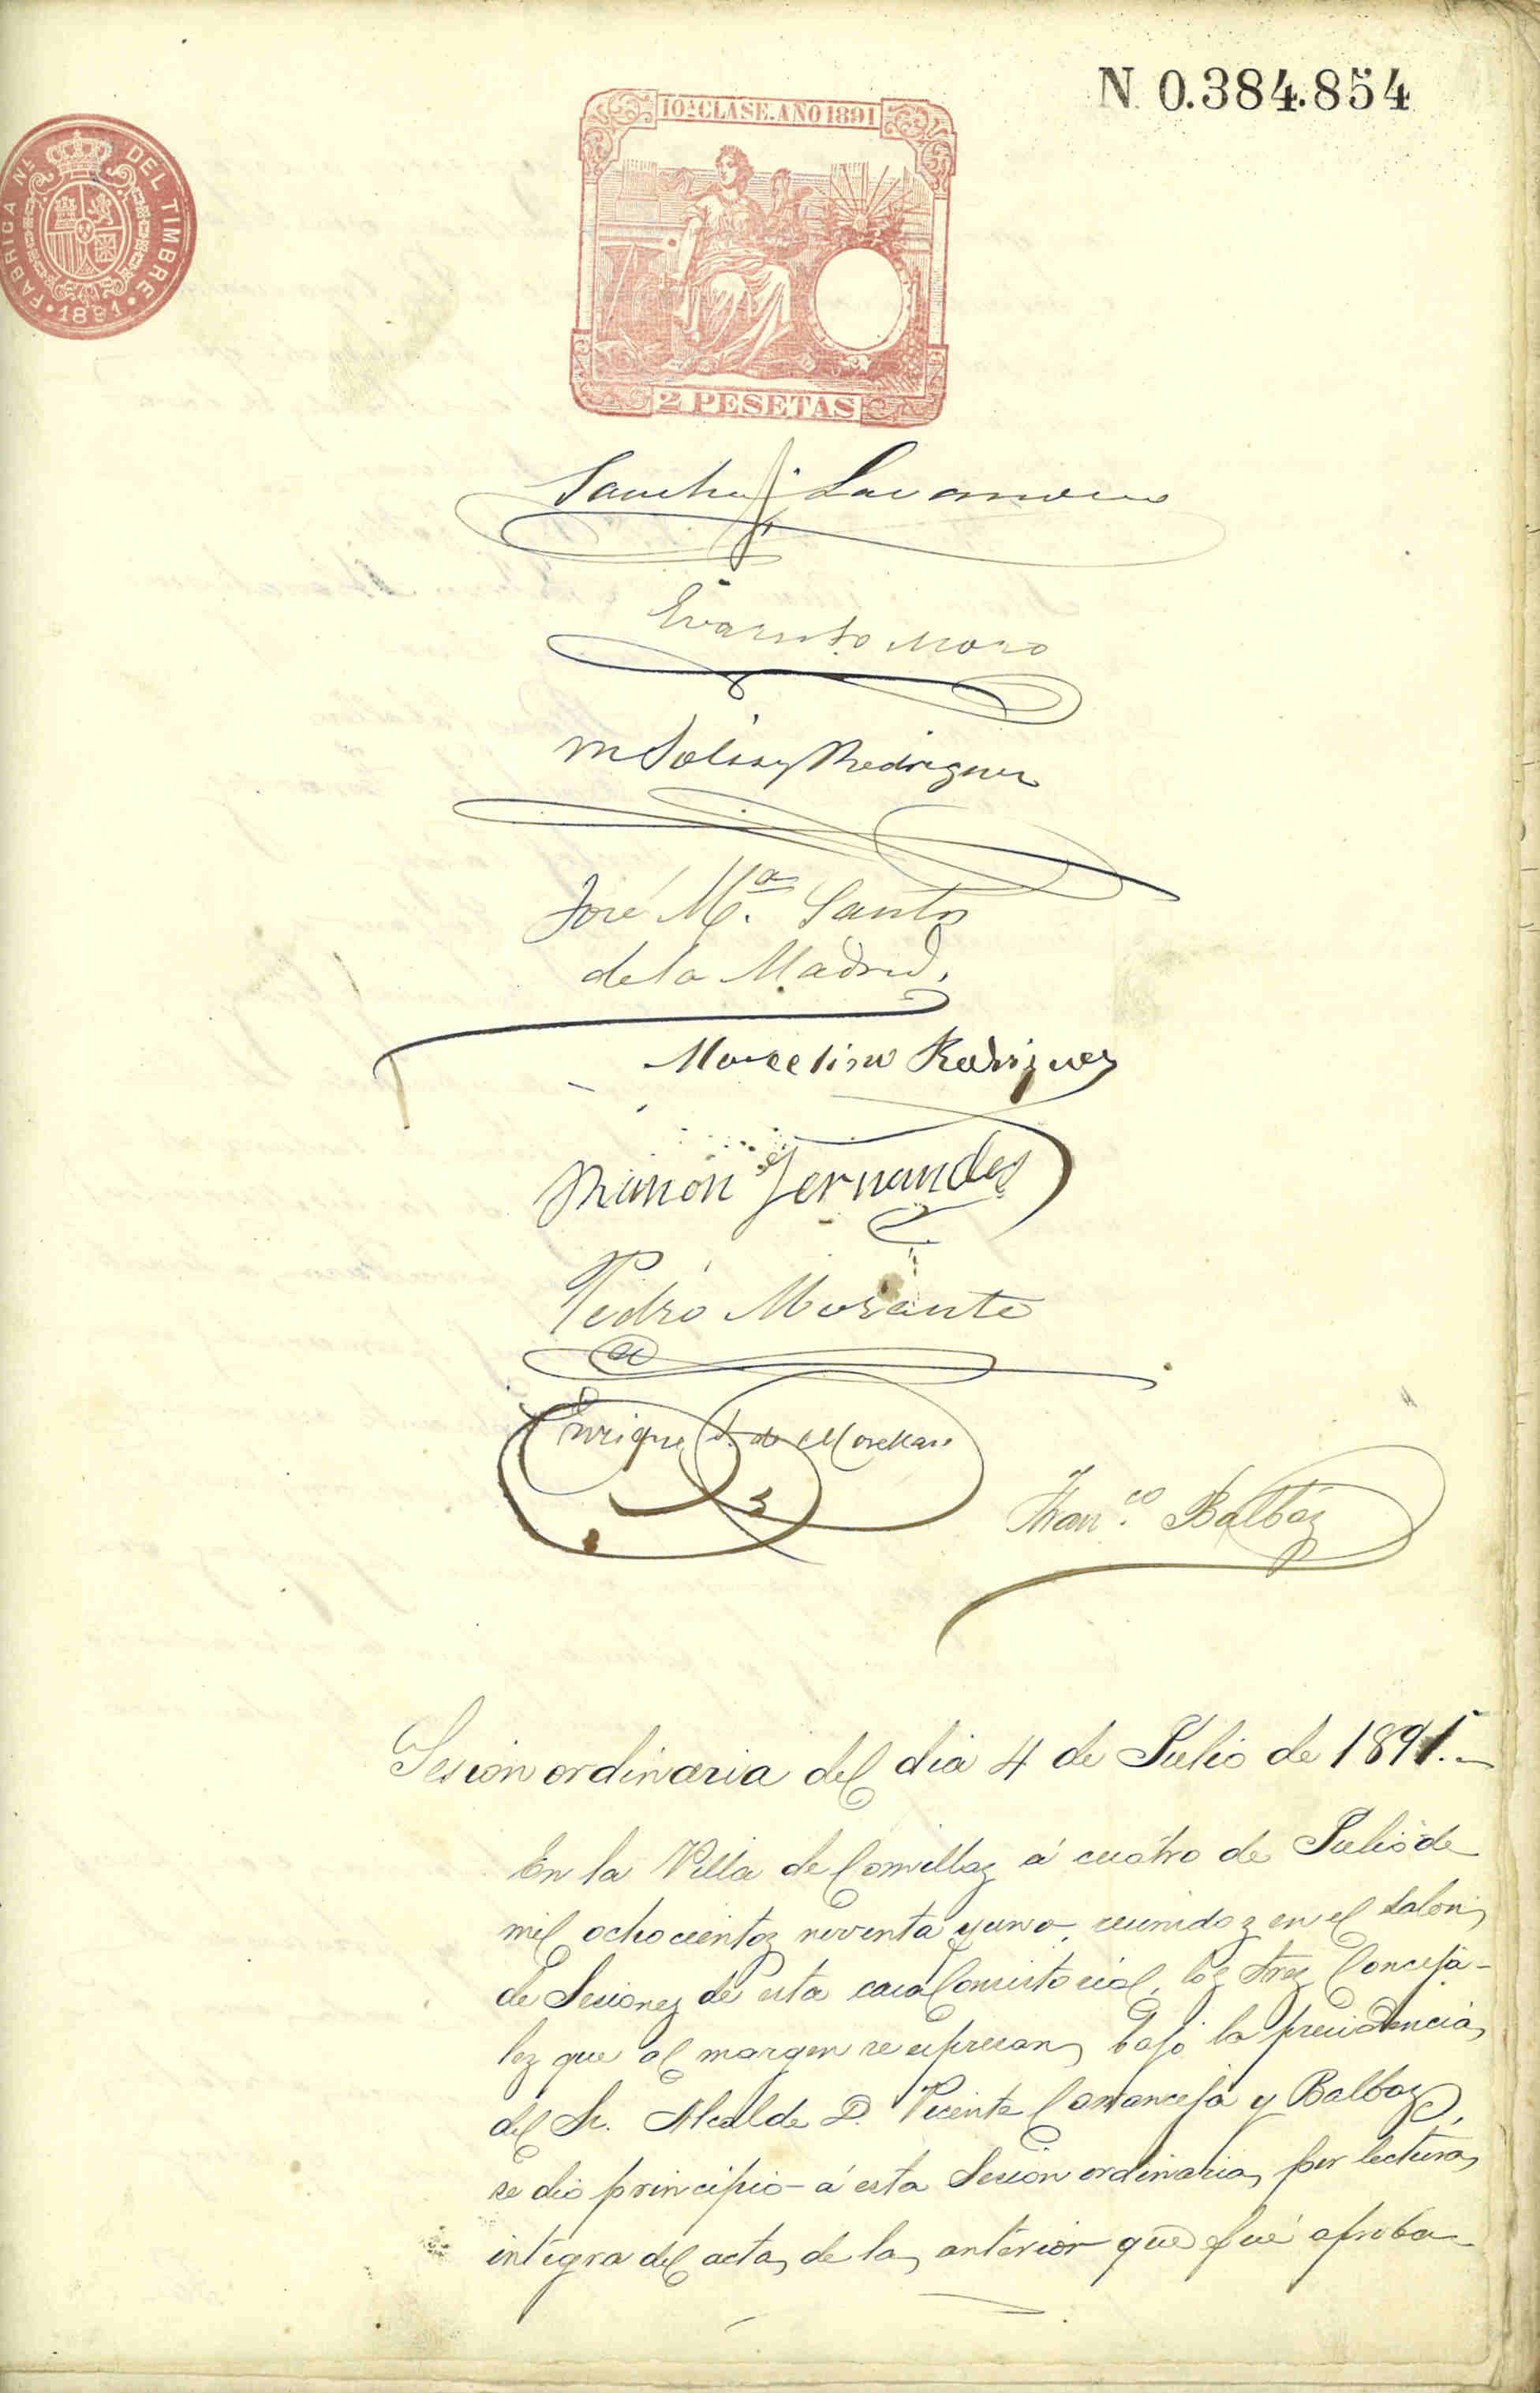 N 0.384.854
10ª CLASE. AÑO 1891
FABRICA NL. DEL TIMBRE
1891
2 PESETAS
Evaristo Moro
M Solis y Rodriguez
José M.ª Santos
de la Madrid.
Marcelino Rodriguez
Ramon Fernandes
Pedro Morante
Enrique
Fran.co Balbáz
Sesion ordinaria del dia 4 de Julio de 1891.-
En la Villa de Comillas á cuatro de Julio de
mil ochocientos noventa y uno, reunidos en el Salon
de Sesiones de esta casa Consistorial, los Sres Conceja-
les que al margen se espresan, bajo la presidencia
del Sr. Alcalde D. Vicente y Balbaz,
se dió principio á esta Sesion ordinaria, por lectura
integra del acta de la anterior que fué aproba-